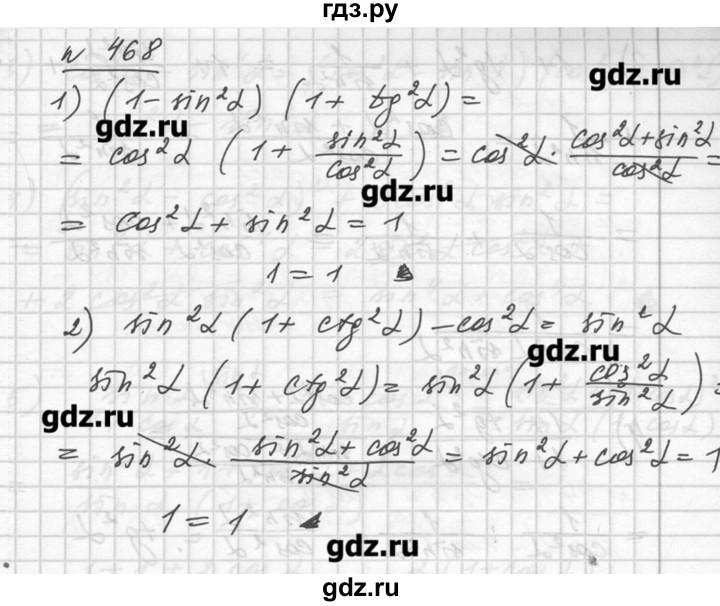 гдз.ру
n 468
gdz.ru
1) (1 - sin²α) (1 + tg²α) =
gdz.ru
= cos²α (1 + sin²α/cos²α) = cos²α · (cos²α + sin²α)/cos²α =
gdz.ru
= cos²α + sin²α = 1
1 = 1
2) sin²α (1 + ctg²α) - cos²α = sin²α
gdz.ru
sin²α (1 + ctg²α) = sin²α (1 + cos²α/sin²α) =
gdz.ru
= sin²α · (sin²α + cos²α)/sin²α = sin²α + cos²α = 1
1 = 1
gdz.ru
gdz.ru